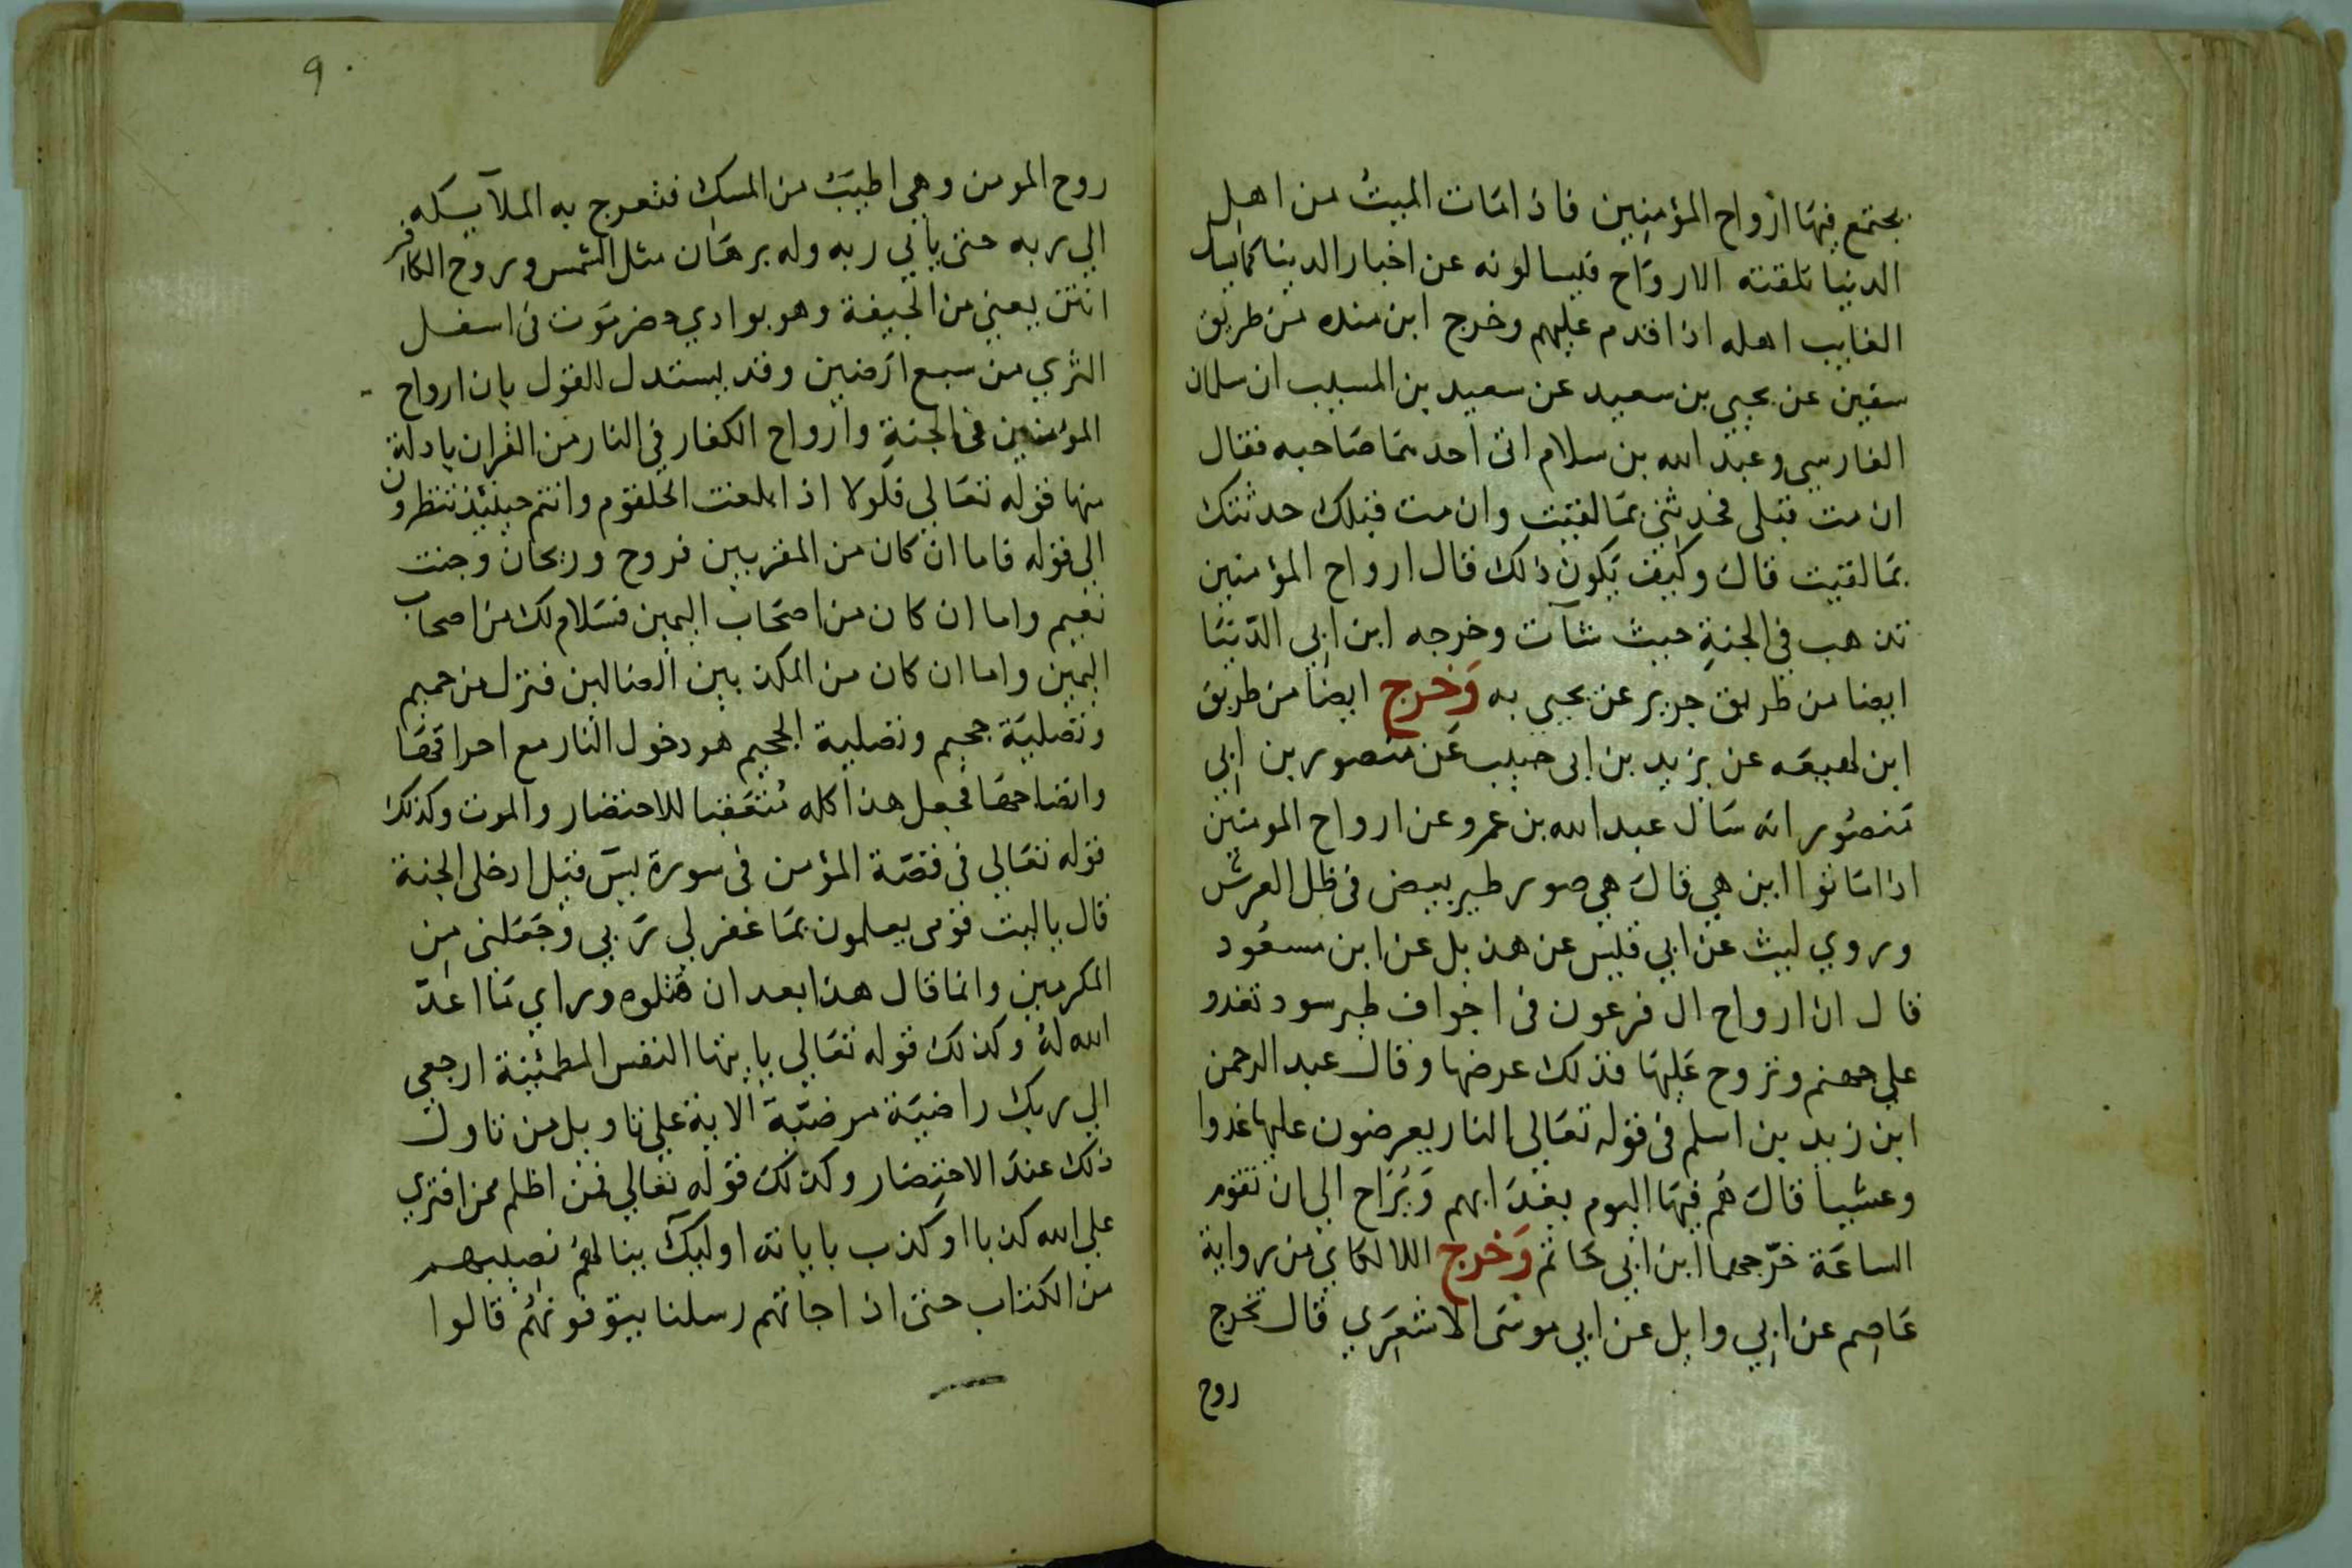 يجتمع فيها ارواح المؤمنين فاذا مات الميت من اهل
الدنيا تلقته الارواح فيسالونه عن اخبار الدنيا كما يسال
الغايب اهله اذا قدم عليهم وخرج ابن منده من طريق
سفين عن يحيى بن سعيد عن سعيد بن المسيب ان سلمان
الفارسي وعبد الله بن سلام اتى احدهما صاحبه فقال
ان مت قبلي فحدثني بما لقيت وان مت قبلك حدثتك
بما لقيت قال وكيف يكون ذلك قال ارواح المؤمنين
تذهب في الجنة حيث شآت وخرجه ابن ابي الدنيا
ايضا من طريق جرير عن يحيى به وخرج ايضا من طريق
ابن لهيعه عن يزيد بن ابى حبيب عن منصور بن ابي
منصور انه سال عبد الله بن عمرو عن ارواح المومنين
اذا ماتوا اين هي قال هي صور طير بيض في ظل العرش
وروي ليث عن ابي قيس عن هذيل عن ابن مسعود
قال ان ارواح ال فرعون في اجواف طير سود تغدو
علي جهنم وتروح عليها فذلك عرضها وقال عبد الرحمن
ابن زيد بن اسلم في قوله تعالى النار يعرضون عليها غدوا
وعشيا قال هم فيها اليوم يغدا بهم ويراح الي ان تقوم
الساعة خرجهما ابن ابي حاتم وخرج اللالكاي من رواية
عاصم عن ابي وايل عن ابي موسى الاشعري قال تخرج
روح
٩
روح المومن وهي اطيب من المسك فتعرج به الملآيكه
الي ربه حتى ياتي ربه وله برهان مثل الشمس وروح الكافر
انتن يعني من الجيفة وهو بوادي حضرموت في اسفل
الثري من سبع ارضين وقد يستدل للقول بان ارواح
المؤمنين في الجنة وارواح الكفار في النار من القران بادلة
منها قوله تعالي فلولا اذا بلغت الحلقوم وانتم حينئذ تنظرون
الى قوله فاما ان كان من المقربين فروح وريحان وجنت
نعيم واما ان كان من اصحاب اليمين فسلام لك من اصحاب
اليمين واما ان كان من المكذبين الضالين فنزل من حميم
وتصلية جحيم وتصلية الجحيم هو دخول النار مع احراقها
وانضاجها فجعل هذا كله متعقبا للاحتضار والموت وكذلك
قوله تعالي في قصة المؤمن في سورة يس قيل ادخل الجنة
قال ياليت قومى يعلمون بما غفر لي ربي وجعلنى من
المكرمين وانما قال هذا بعد ان قتلوه وراي ما اعد
الله له وكذلك قوله تعالي يا يتها النفس المطمئنة ارجعي
الي ربك راضية مرضية الاية علي تاويل من تاول
ذلك عند الاحتضار وكذلك قوله تعالي فمن اظلم ممن افتري
علي الله كذبا او كذب باياته اوليك ينالهم نصيبهم
من الكتاب حتى اذا جاتهم رسلنا يتوفونهم قالوا